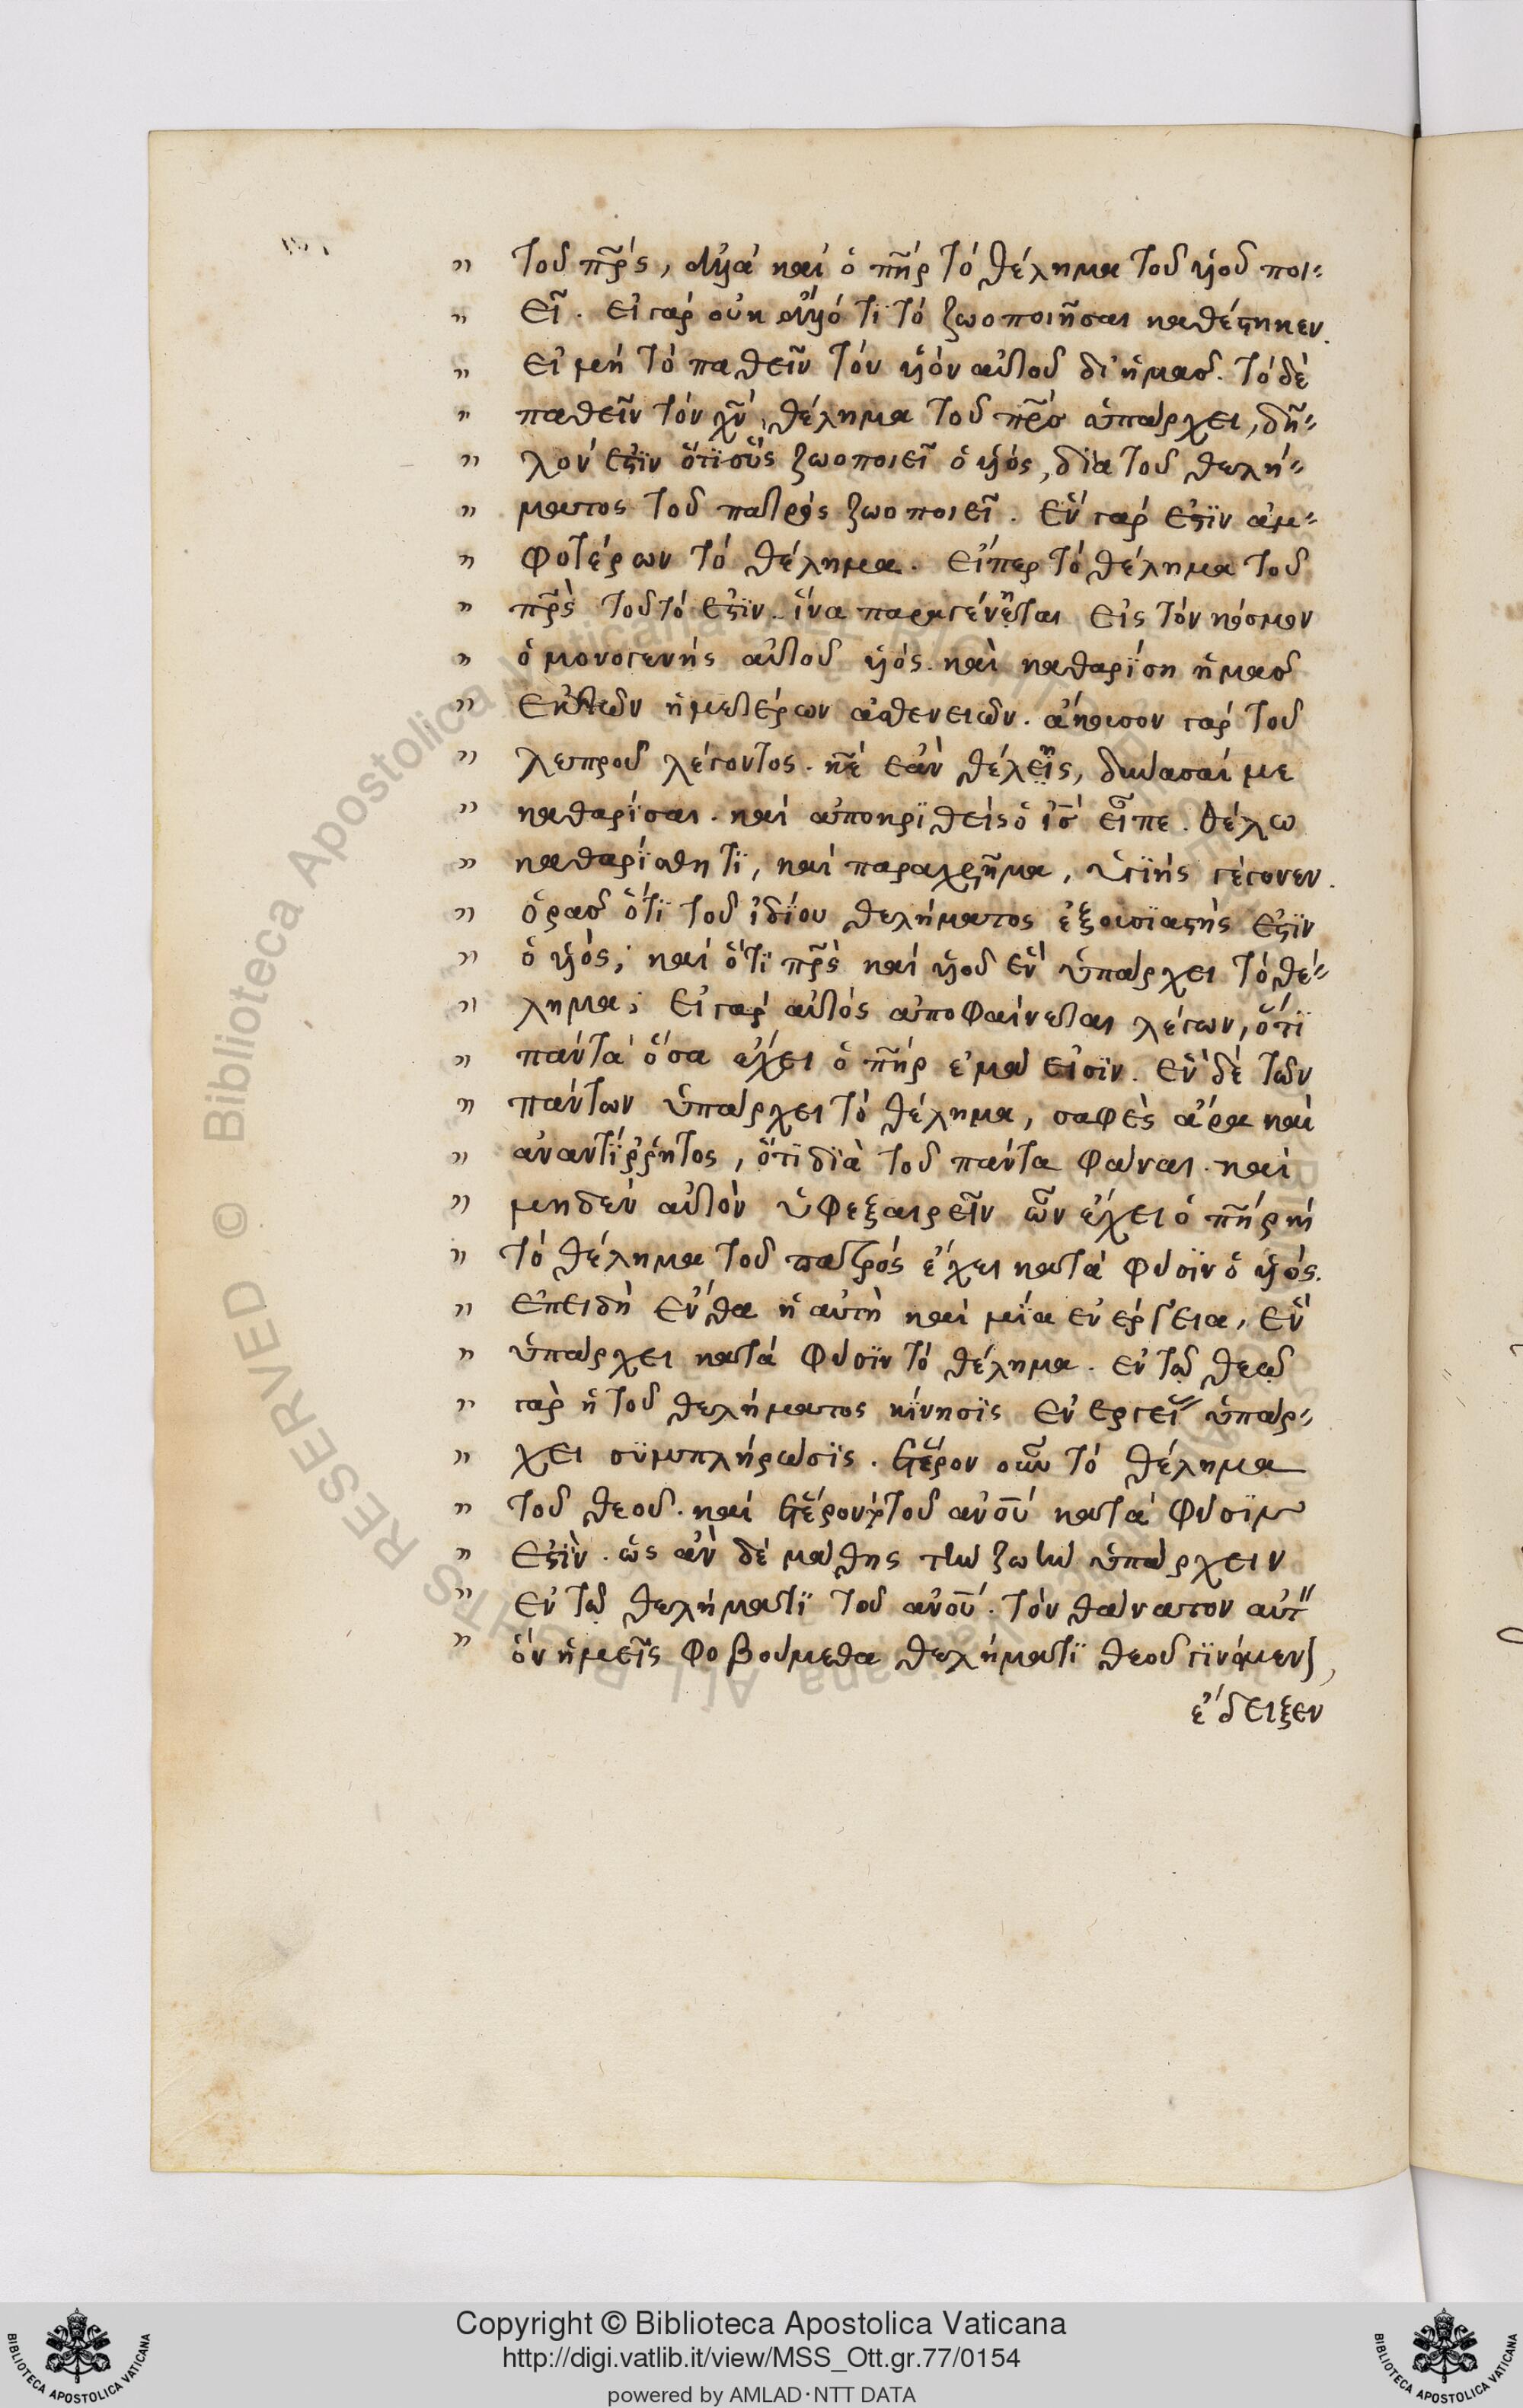 τοῦ πρ̅ς, ἀλλὰ καὶ ὁ πη̅ρ τὸ θέλημα τοῦ υἱοῦ ποι-
εῖ. εἰ γὰρ οὐκ ἄλλό τι τὸ ζωοποιῆσαι καθέστηκεν.
εἰ μὴ τὸ παθεῖν τὸν υἱὸν αὐτοῦ δι' ἡμᾶς. τὸ δὲ
παθεῖν τὸν χν̅, θέλημα τοῦ πρ̅ς ὑπάρχει, δῆ-
λον ἐστὶν ὅτι οὓς ζωοποιεῖ ὁ υἱός, διὰ τοῦ θελή-
ματος τοῦ πατρός ζωοποιεῖ. ἓν γὰρ ἐστὶν ἀμ-
φοτέρων τὸ θέλημα. εἴπερ τὸ θέλημα τοῦ
πρ̅ς τοῦτό ἐστιν. ἵνα παραγένηται εἰς τὸν κόσμον
ὁ μονογενής αὐτοῦ υἱός. καὶ καθαρίση ἡμᾶς
ἐκ τῶν ἡμετέρων ἀσθενειῶν. ἄκουσον γὰρ τοῦ
λεπροῦ λέγοντος. κε̅ ἐὰν θέλῃς, δύνασαί με
καθαρίσαι. καὶ ἀποκριθείς ὁ ις̅ εἶπε. θέλω
καθαρίσθητι, καὶ παραχρῆμα, ὑγιής γέγονεν.
ὁρᾶς ὅτι τοῦ ἰδίου θελήματος ἐξουσιαστής ἐστιν
ὁ υἱός; καὶ ὅτι πρ̅ς καὶ υἱοῦ ἓν ὑπάρχει τὸ θέ-
λημα; εἰ γὰρ αὐτός ἀποφαίνεται λέγων, ὅτι
πάντα ὅσα ἔχει ὁ πη̅ρ ἐμά εἰσιν. ἓν δὲ τῶν
πάντων ὑπάρχει τὸ θέλημα, σαφὲς ἄρα καὶ
ἀναντίρρητος, ὅτι διὰ τοῦ πάντα φάναι. καὶ
μηδὲν αὐτὸν ὑφεξαιρεῖν ὧν ἔχει ὁ πη̅ρ κ̀
τὸ θέλημα τοῦ πατρός ἔχει κατὰ φύσιν ὁ υἱός.
ἐπειδὴ ἔνθα ἡ αὐτὴ καὶ μία ἐνέργεια, ἓν
ὑπάρχει κατὰ φύσιν τὸ θέλημα. ἐν τῷ θεῷ
γὰρ ἡ τοῦ θελήματος κίνησις ἐνεργεῖ ὑπάρ-
χει συμπλήρωσις. ἕτερον οὖν τὸ θέλημα
τοῦ θεοῦ. καὶ ἕτερον τοῦ ανου̅ κατὰ φύσιν
ἐστίν. ὡς ἂν δὲ μάθῃς τὴν ζωὴν ὑπάρχειν
ἐν τῷ θελήματι τοῦ ανου̅. τὸν θάνατον αὐτ
ὃν ἡμεῖς φοβούμεθα θελήματι θεοῦ γινόμεν,
ἔδειξεν
Copyright © Biblioteca Apostolica Vaticana
http://digi.vatlib.it/view/MSS_Ott.gr.77/0154
powered by AMLAD·NTT DATA